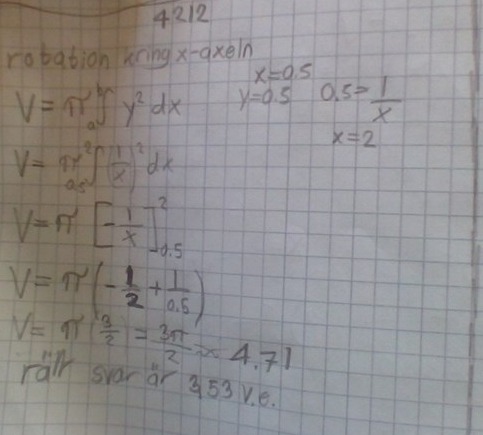 4212
rotation kring x-axeln
x=0.5
V = π a∫b y² dx y=0.5 0.5 = 1/x
x=2
V = π 0.5∫2 (1/x)² dx
V = π [-1/x]²0.5
V = π (-1/2 + 1/0.5)
V = π (3/2) = 3π/2 ≈ 4.71
rätt svar är 3,53 v.e.